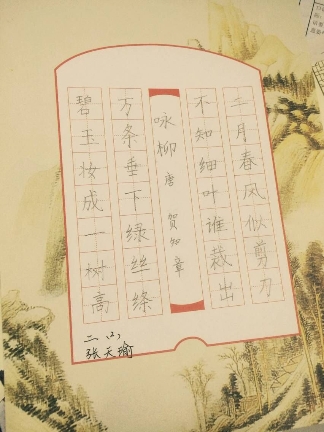 碧玉妆成一树高
万条垂下绿丝绦
咏柳 唐 贺知章
不知细叶谁裁出
二月春风似剪刀
张天瑜